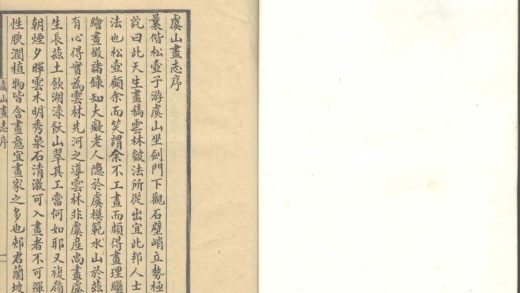 虞山畫志序
曩偕松壺子游虞山坐劍門下觀石壁峭立勢極
詫曰此天生畫稿雲林皴法所從出宜此邦人士
法也松壺顧余而笑謂余不工畫而頗得畫理繼
繪畫徵諸錄知大癡老人隱於虞模範水山於茲
有心得實為雲林先河之導雲林非虞產尚畫虞
生長茲土飲湖淥飫山翠其工當何如耶又複嶺
朝煙夕暉雲木明秀泉石清激可入畫者不可殫
性腴潤植物皆含畫意宜畫家之多也郟君蘭坡
虞山畫志序
一